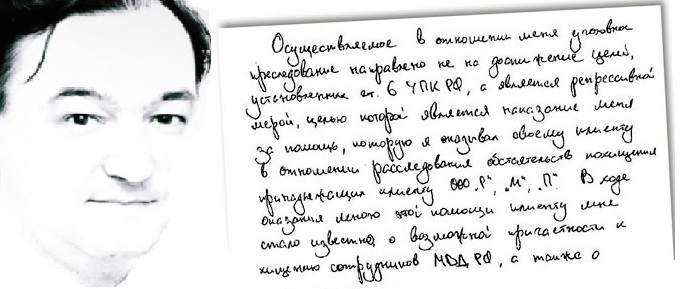 Осуществляемое в отношении меня уголовное
преследование направлено не на достижение целей,
установленных ст. 6 УПК РФ, а является репрессивной
мерой, целью которой является наказание меня
за помощь, которую я оказывал своему клиенту
в отношении расследования обстоятельств похищения
принадлежащих клиенту ООО „Р“, „М“, „П“. В ходе
оказания мною этой помощи клиенту мне
стало известно о возможной причастности к
хищению сотрудников МВД РФ, а также о